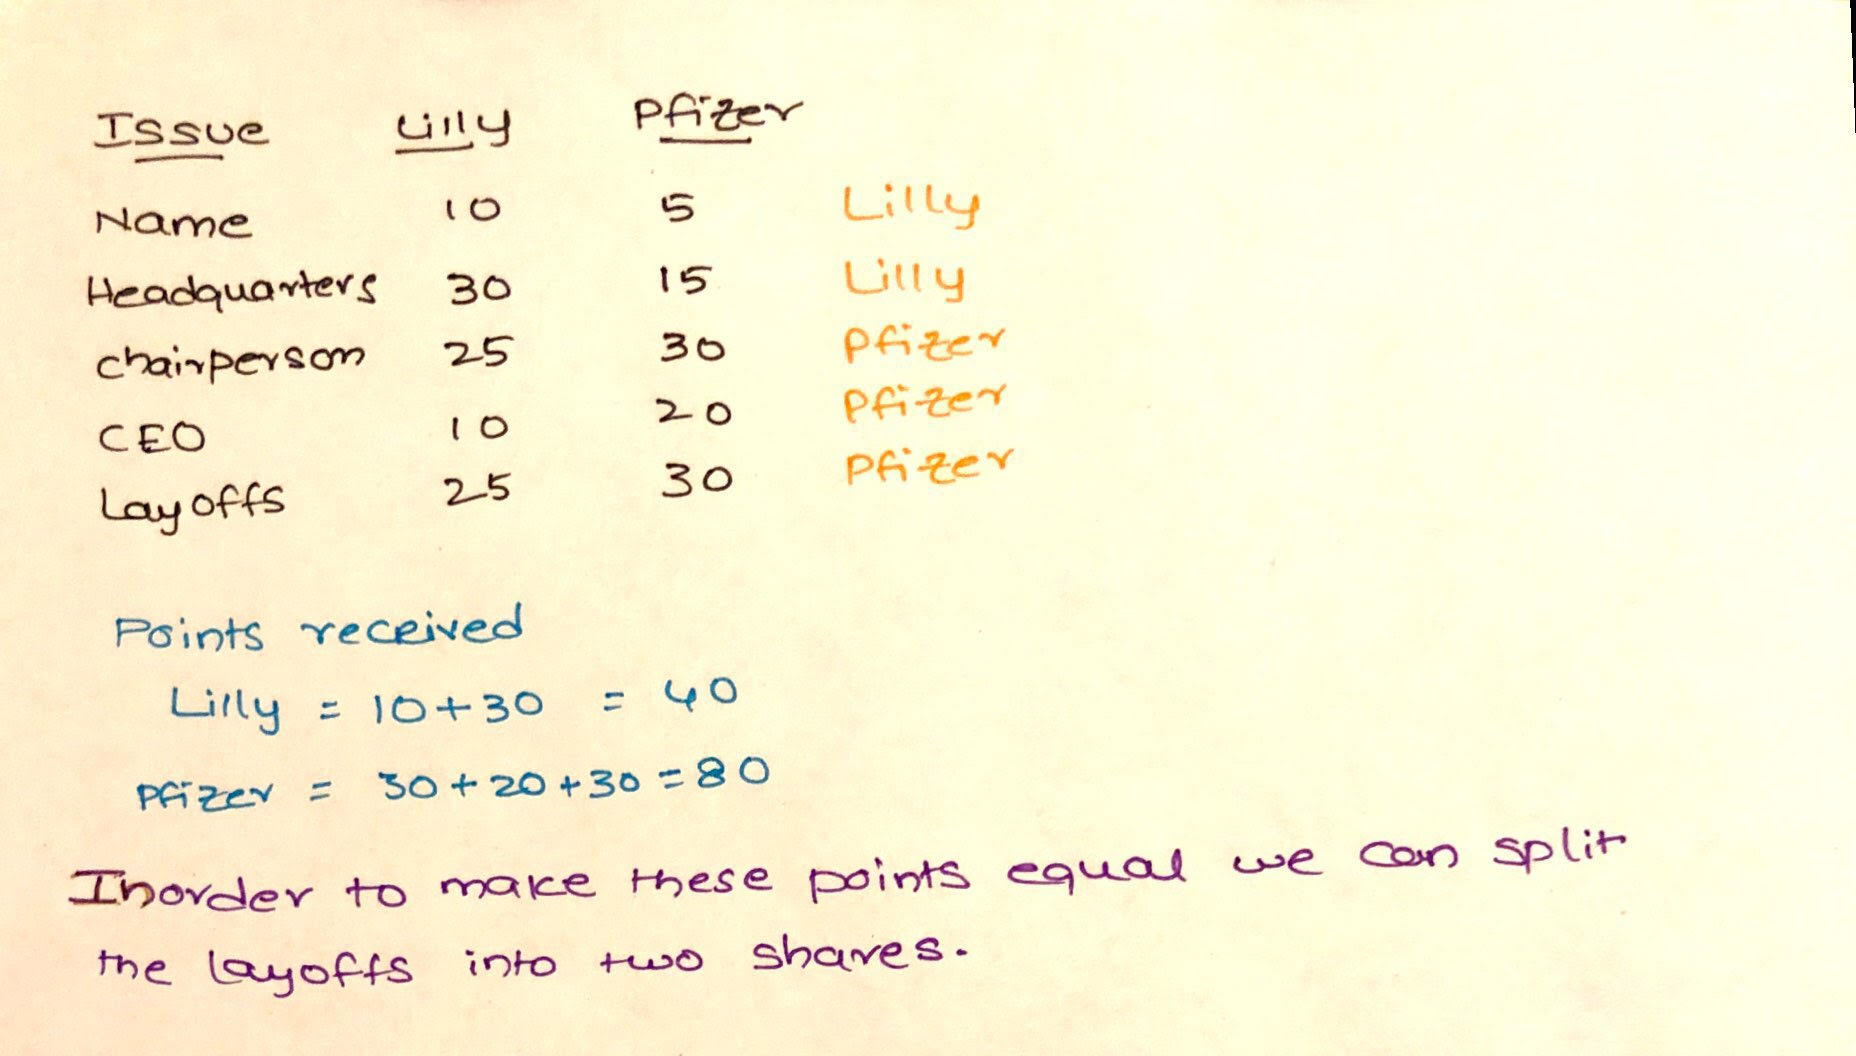 Issue Lilly Pfizer
Name 10 5 Lilly
Headquarters 30 15 Lilly
chairperson 25 30 Pfizer
CEO 10 20 Pfizer
Layoffs 25 30 Pfizer
Points received
Lilly = 10+30 = 40
Pfizer = 30+20+30=80
Inorder to make these points equal we can split
the layoffs into two shares.